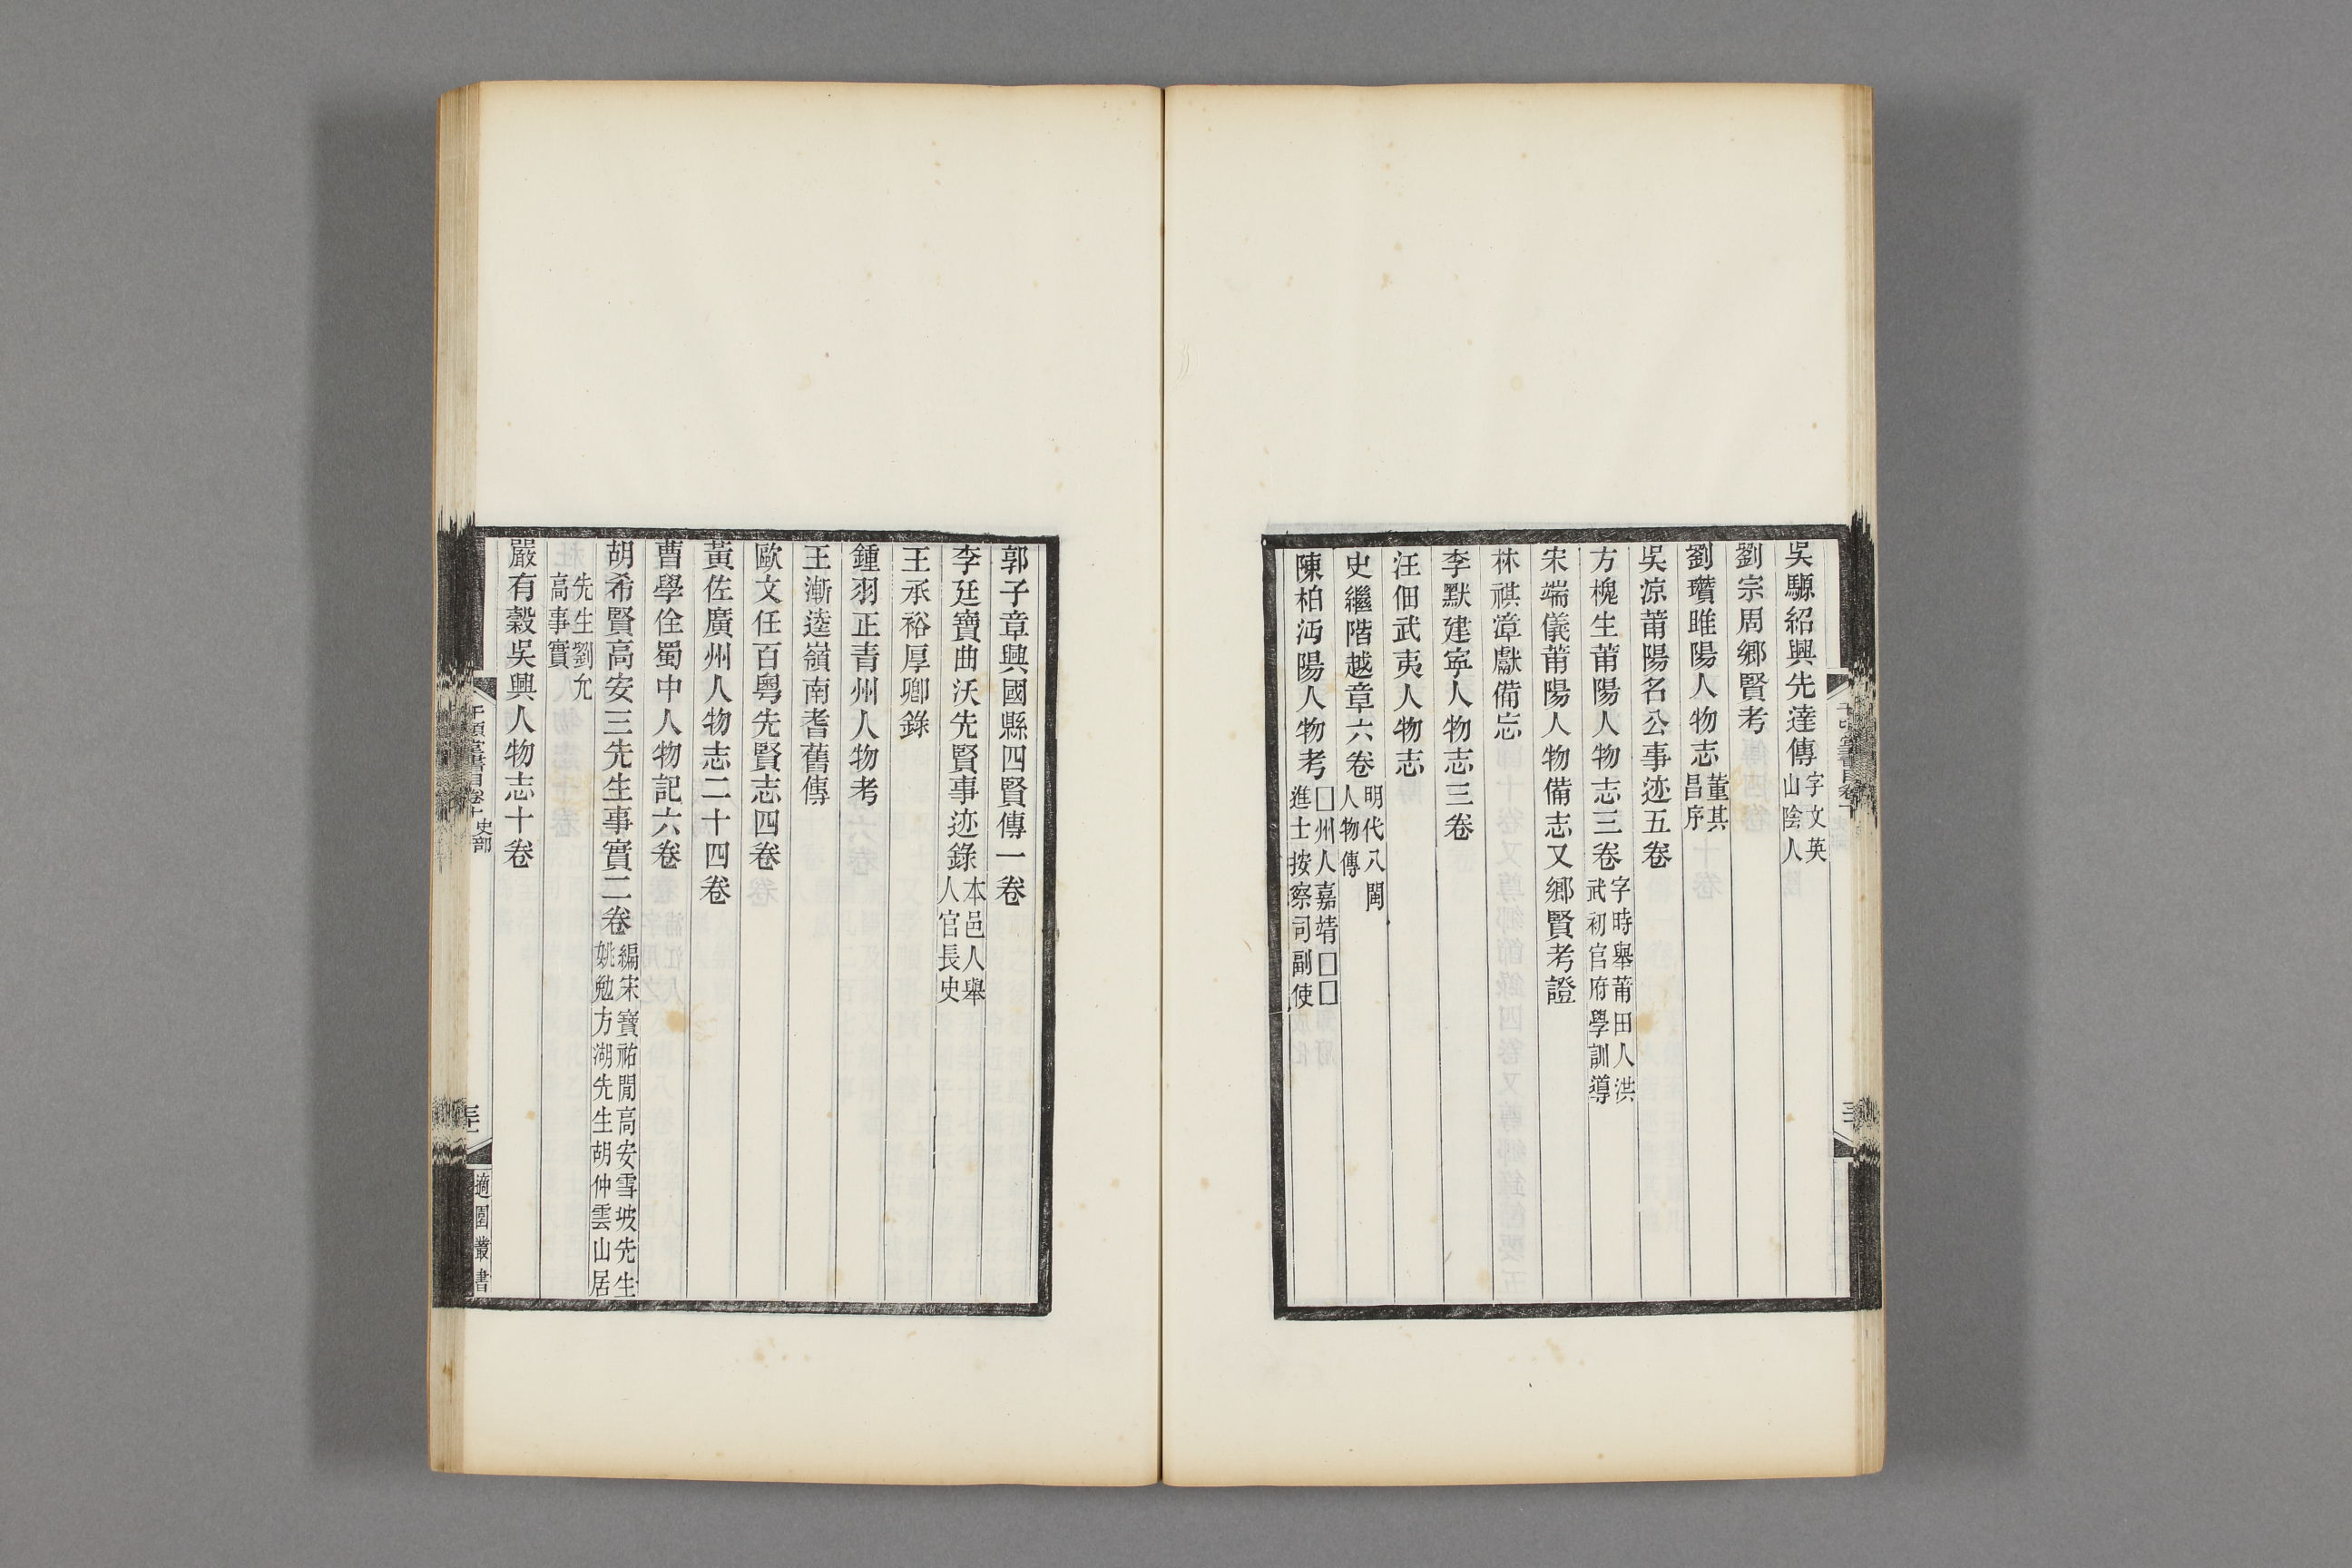 吳驥紹興先達傳字文英山陰人
劉宗周鄉賢考
劉瓚雎陽人物志董其昌序
吳源莆陽名公事迹五卷
方槐生莆陽人物志三卷字時舉莆田人洪武初官府學訓導
宋端儀莆陽人物備志又鄉賢考證
林祺漳獻備忘
李默建寧人物志三卷
汪佃武夷人物志
史繼階越章六卷明代八閩人物傳
陳柏沔陽人物考□州人嘉靖□□進士按察司副使
郭子章興國縣四賢傳一卷
李廷寶曲沃先賢事迹錄本邑人舉人官長史
王承裕厚鄉錄
鍾羽正青州人物考
王漸逵嶺南耆舊傳
歐文任百粵先賢志四卷
黃佐廣州人物志二十四卷
曹學佺蜀中人物記六卷
胡希賢高安三先生事實二卷編宋寶祐間高安雪坡先生姚勉方湖先生胡仲雲山居
先生劉允高事實
嚴有穀吳興人物志十卷
千頃堂書目卷十 史部
適園叢書